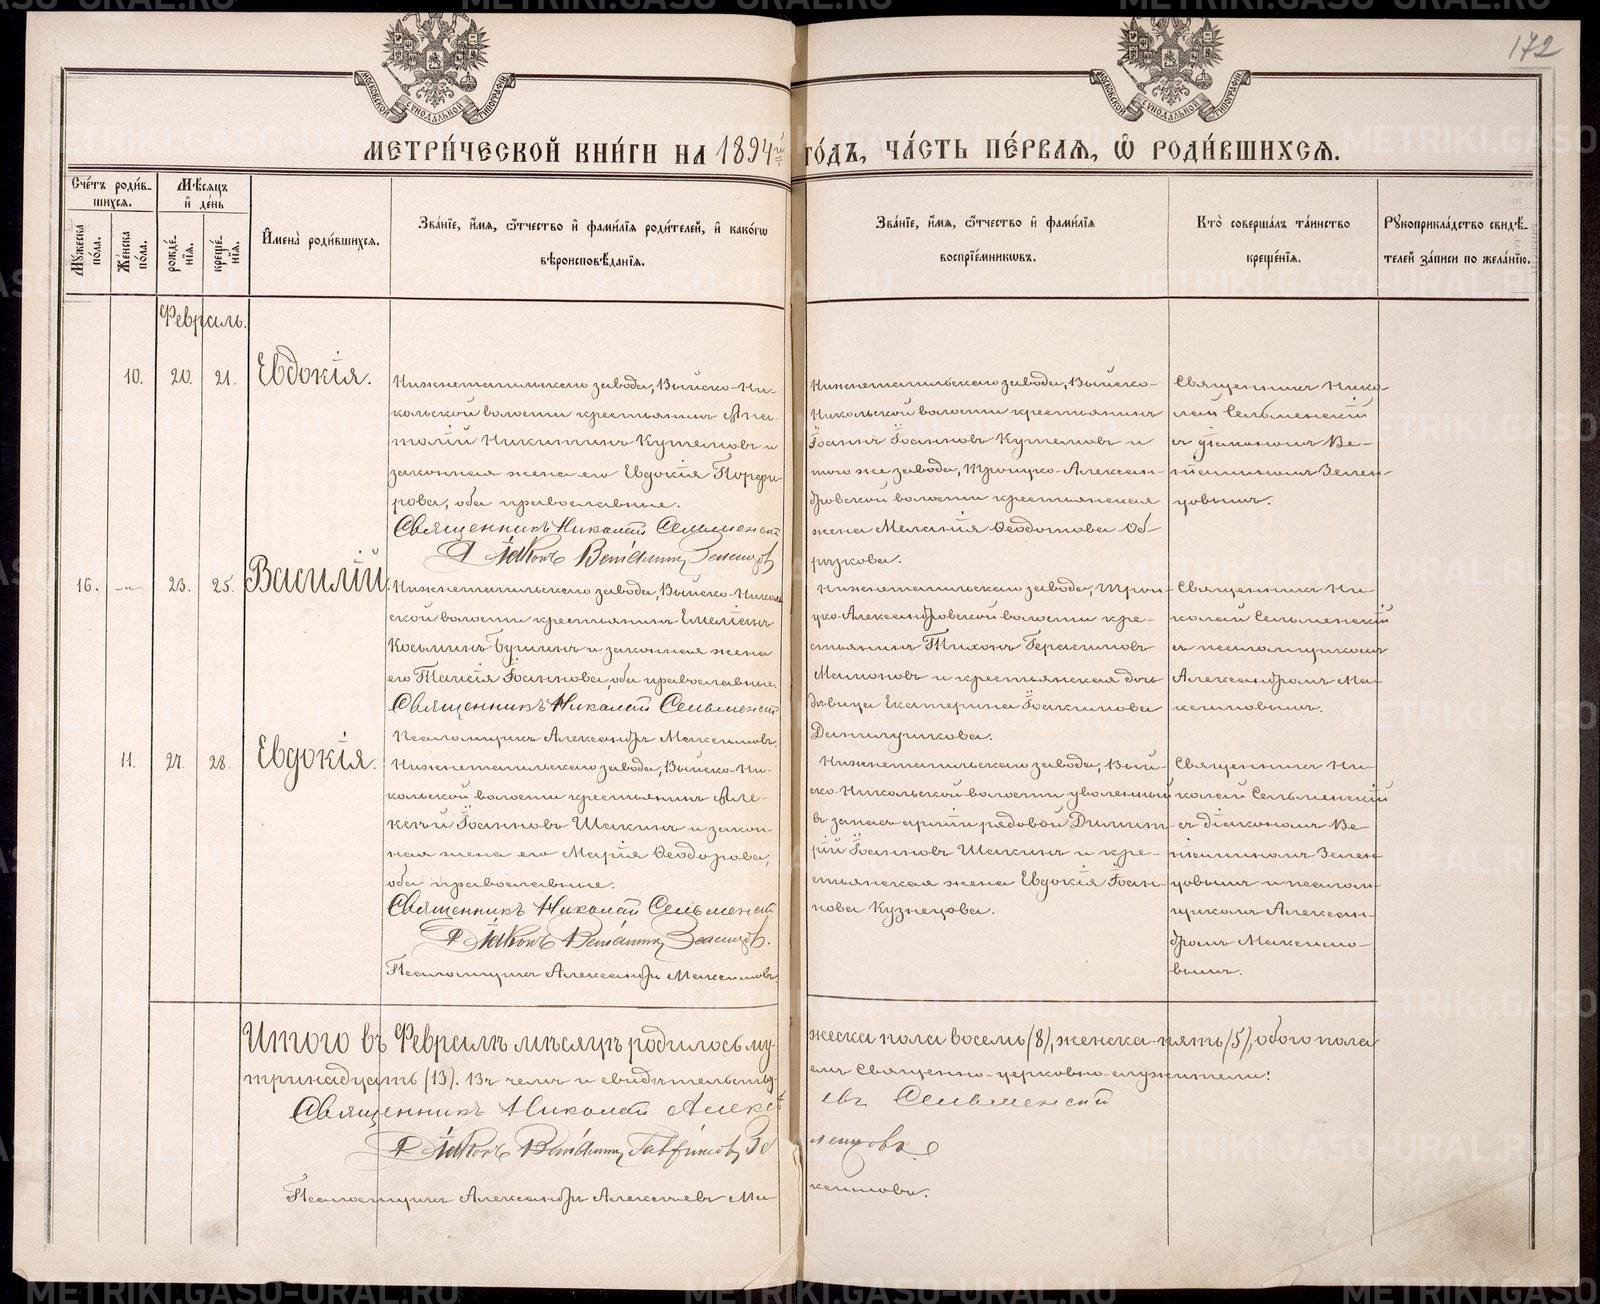 172
МОСКОВСКОЙ СѴНОДАЛЬНОЙ ТИПОГРАФІИ
МОСКОВСКОЙ СѴНОДАЛЬНОЙ ТИПОГРАФІИ
МЕТРИ́ЧЕСКОЙ КНИ́ГИ НА 1894й ГО́ДЪ, ЧА́СТЬ ПЕ́РВАѦ, Ѽ РОДИ́ВШИХСѦ.
Сче́тъ роди́в-
шихся.
Мꙋжеска по́ла.
Же́нска по́ла.
Мѣ́сяцъ
и҆ де́нь
рожде́-
нїя.
креще́-
нїя.
И҆мена̀ роди́вшихся.
Зва́нїе, и҆́мя, ѻ҆́тчество и҆ фами́лїя роди́телей, и҆ како́гѡ
вѣроисповѣ́данїя.
Зва́нїе, и҆́мя, ѻ҆́тчество и҆ фами́лїя
воспрїе́мникѡвъ.
Кто̀ соверша́лъ та́инство
креще́нїя.
Рꙋкоприкла́дство свидѣ́-
телей за́писи по жела́нїю.
Февраль.
10. 20. 21. Евдокія.
Нижнетагильскаго завода, Выйско-Ни-
кольской волости крестьянинъ Ана-
толій Никитинъ Кутемовъ и
законная жена его Евдокія Порфи-
рова, оба православные.
Священникъ Николай Сельменскій
Діаконъ Веніаминъ Зеленцовъ
Нижнетагильскаго завода, Выйско-
Никольской волости крестьянинъ
Іоаннъ Іоанновъ Кутемовъ и
того же завода, Троицко-Александ-
ровской волости крестьянская
жена Меланія Ѳеодотова Об-
рызкова.
Священникъ Нико-
лай Сельменскій
съ діакономъ Ве-
ніаминомъ Зелен-
цовымъ.
16. -„- 23. 25. Василій.
Нижнетагильскаго завода, Выйско-Николь-
ской волости крестьянинъ Емеліанъ
Косьминъ Бушинъ и законная жена
его Таисія Іоаннова, оба православные.
Священникъ Николай Сельменскій
Псаломщикъ Александръ Максимовъ.
Нижнетагильскаго завода, Трои-
цко-Александровской волости кре-
стьянинъ Тихонъ Герасимовъ
Мамоновъ и крестьянская дочь
дѣвица Екатерина Іоакимова
Данилушкова.
Священникъ Ни-
колай Сельменскій
съ псаломщикомъ
Александромъ Ма-
ксимовымъ.
11. 27. 28. Евдокія.
Нижнетагильскаго завода, Выйско-Ни-
кольской волости крестьянинъ Але-
ксѣй Іоанновъ Шакинъ и закон-
ная жена его Марія Ѳеодорова,
оба православные.
Священникъ Николай Сельменскій
Діаконъ Веніаминъ Зеленцовъ.
Псаломщикъ Александръ Максимовъ
Нижнетагильскаго завода, Вый-
ско-Никольской волости уволенный
въ запасъ арміи рядовой Димит-
рій Іоанновъ Шакинъ и кре-
стьянская жена Евдокія Іоан-
нова Кузнецова.
Священникъ Ни-
колай Сельменскій
съ діакономъ Ве-
ніаминомъ Зелен-
цовымъ и псалом-
щикомъ Алексан-
дромъ Максимо-
вымъ.
Итого въ Февралѣ мѣсяцѣ родилось му- жеска пола восемь (8), женска-пять (5), обоего пола
тринадцать (13). Въ чемъ и свидѣтельству- емъ Священно-церковно-служители:
Священникъ Николай Алексѣ евъ Сельменскій
Діаконъ Веніаминъ Гавриловъ Зе ленцовъ
Псаломщикъ Александръ Алексѣевъ Ма ксимовъ.
METRIKI.GASO-URAL.RU